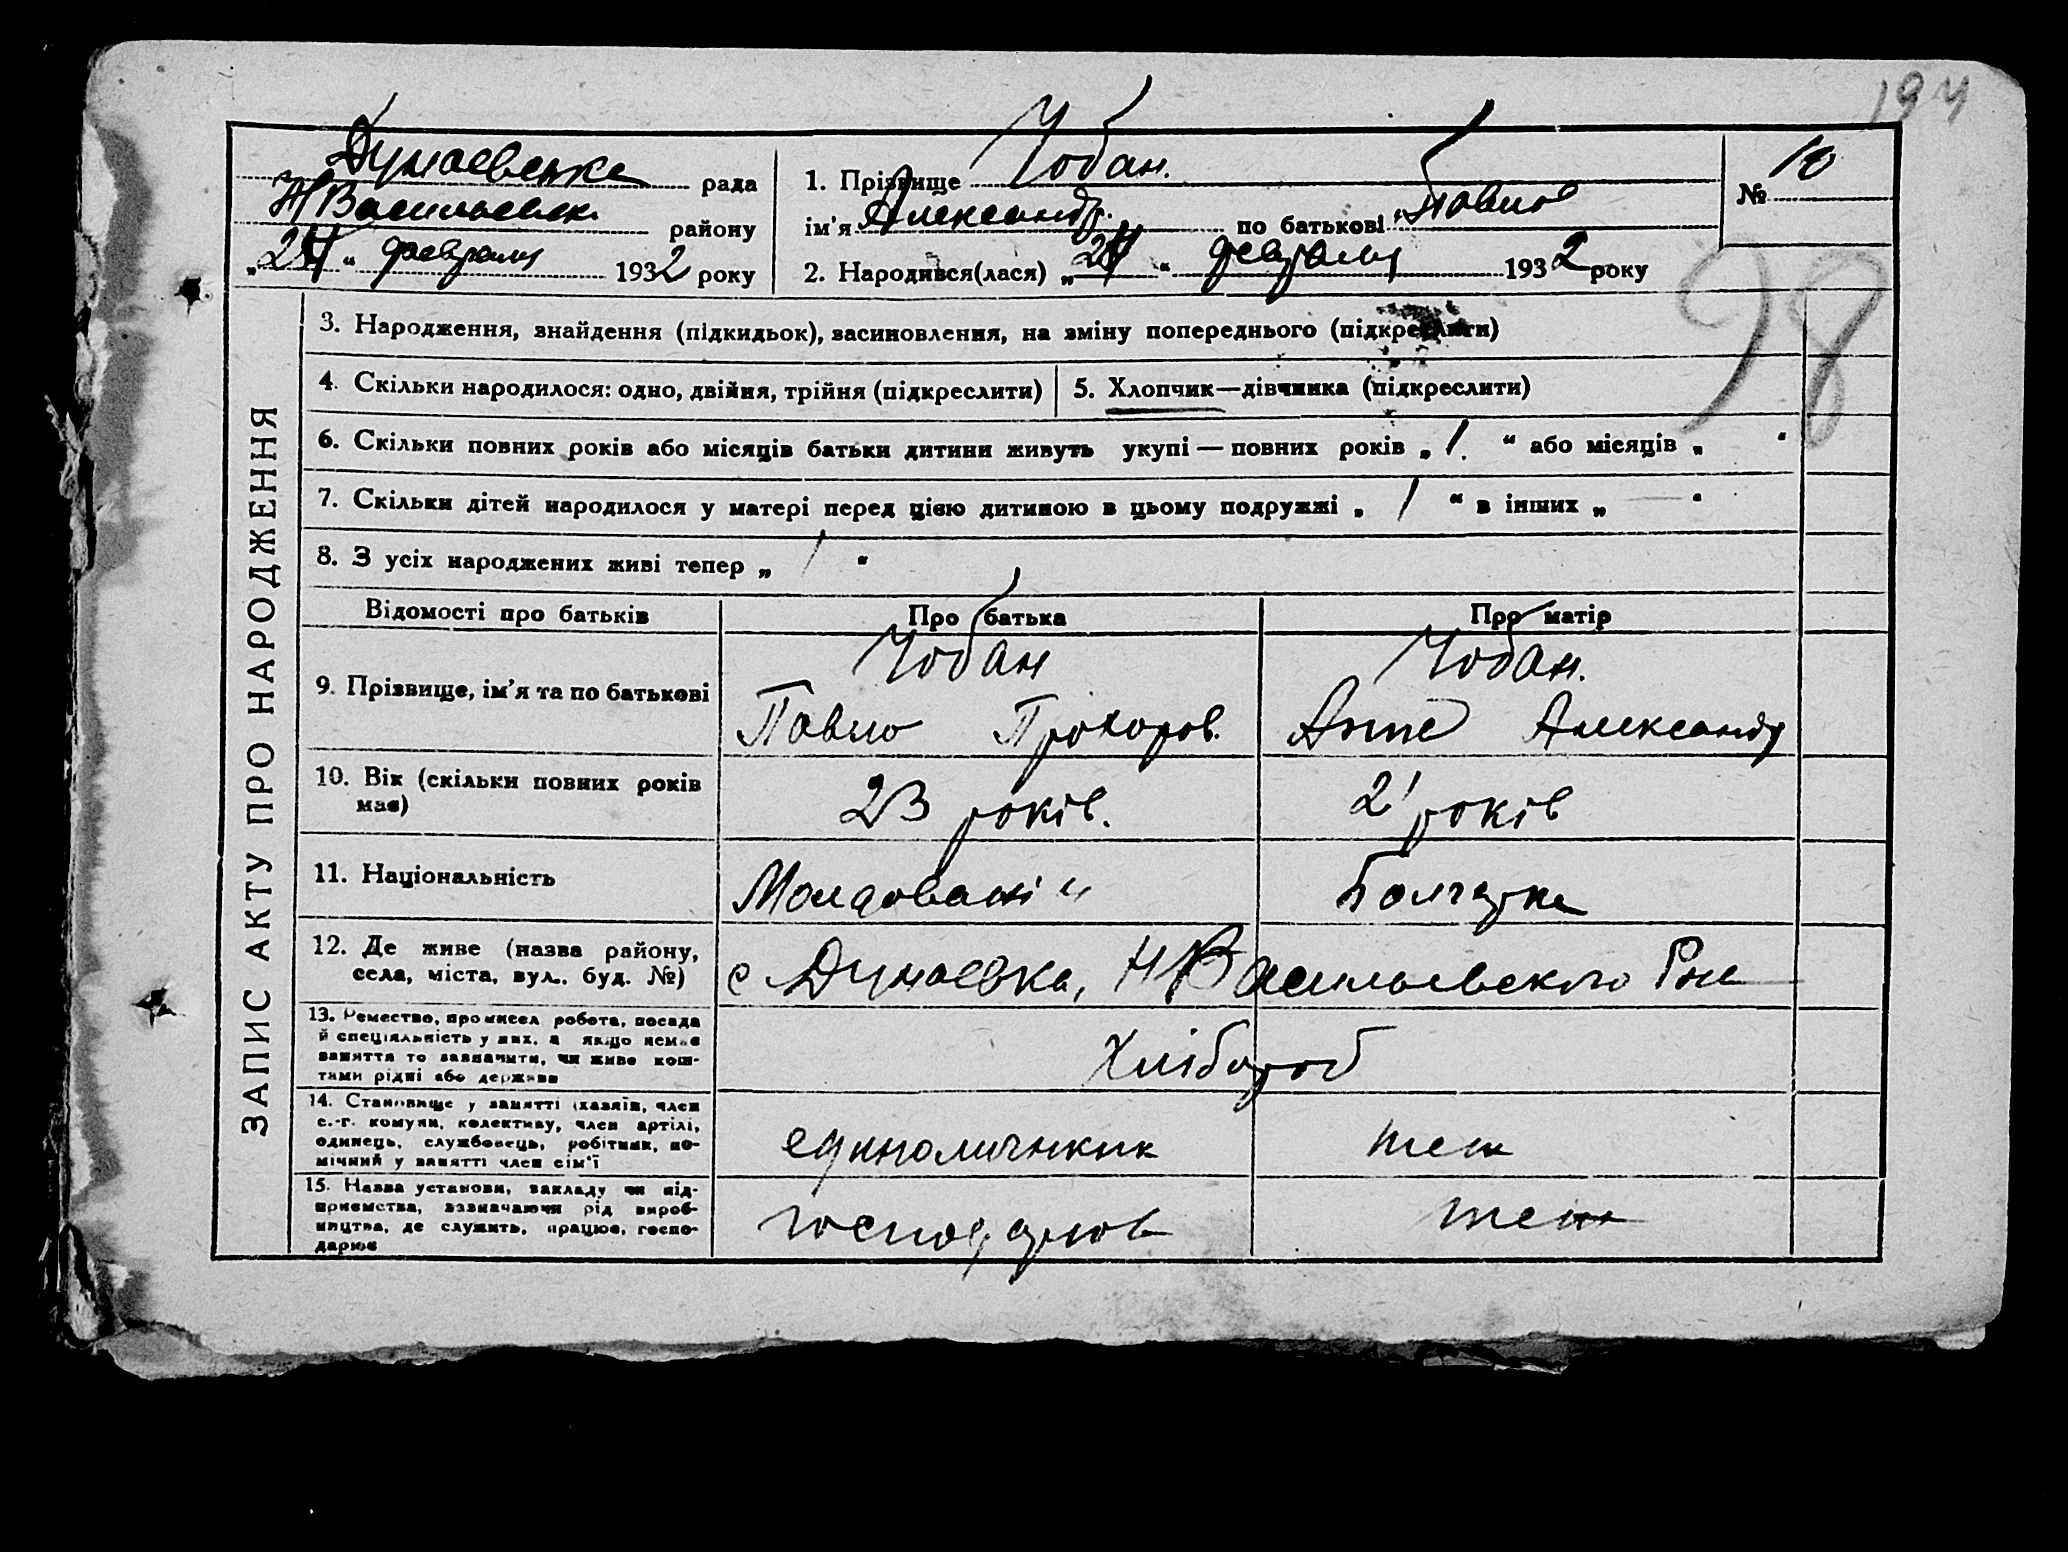 194
Дунаевська рада
Н Васильевськ. району
„24“ февраля 1932 року
1. Прізвище Чобан.
ім'я Александр. по батькові Павлов
2. Народився(лася) „24“ февраля 1932 року
№ 10
98
ЗАПИС АКТУ ПРО НАРОДЖЕННЯ
3. Народження, знайдення (підкидьок), васиновлення, на зміну попереднього (підкреслити)
4. Скільки народилося: одно, двійня, трійня (підкреслити)
5. Хлопчик—дівчинка (підкреслити)
6. Скільки повних років або місяців батьки дитини живуть укупі — повних років „1.“ або місяців „ “
7. Скільки дітей народилося у матері перед цією дитиною в цьому подружжі „1“ в інших „—“
8. З усіх народжених живі тепер „1“
Відомості про батьків Про батька Про матір
9. Прізвище, ім'я та по батькові
Чобан
Павло Прохоров.
Чобан.
Анне Александр
10. Вік (скільки повних років має)
23 років.
21 років
11. Національність
Молдованін
Болгарка
12. Де живе (назва району,
села, міста, вул., буд. №)
с Дунаевка, Н Васильевского Рон
13. Ремество, промисел робота, посада
й спеціяльність у них, а якщо немає
заняття то зазначити, чи живе кош-
тами рідні або держави
Хлібороб
14. Становище у занятті (хазяїн, член
с.-г. комуни, колективу, член артілі,
одинець, службовець, робітник, по-
мічний у занятті член сім'ї
единоличник
теж
15. Назва установи, закладу чи під-
приємства, зазначаючи рід вироб-
ництва, де служить, працює, госпо-
дарює
господарюв
теж